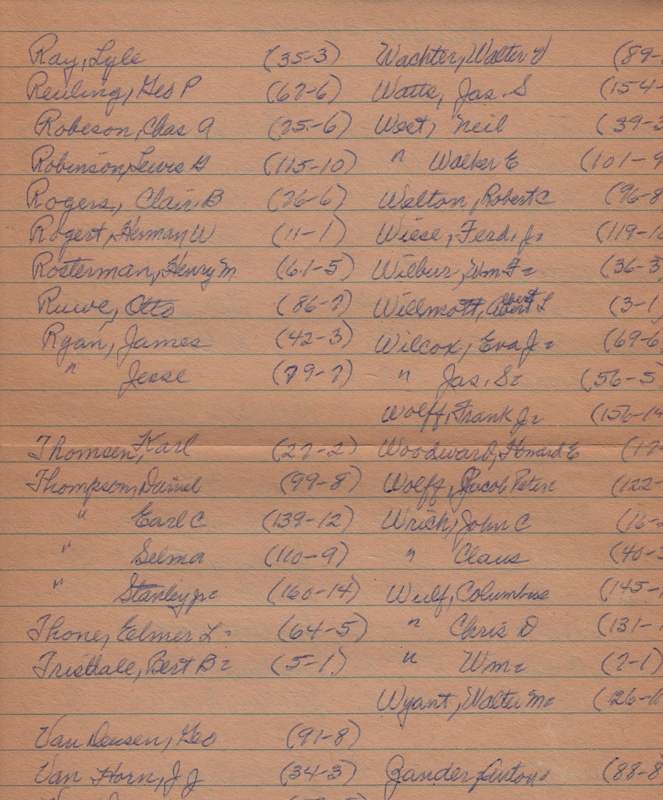 Ray, Lyle (35-3) Wachter, Walter
Reuling, Geo P (67-6) Watts, Jas. S (154-
Robeson, Chas A (25-6) West, Neil (39-3
Robinson, Lewis (115-10) " Walker E (101-9
Rogers, Clair B (26-6) Welton, Robert C (96-8
Rogert, Herman W (11-1) Wiese, Ferd, Jr (119-1
Rosterman, Henry M (61-5) Wilbur, Wm (36-3
Ruwe, Otto (86-7) Willmott, Albert L (3-1
Ryan, James (42-3) Wilcox, Eva (69-6
" Jesse (79-7) " Jas, S (56-5
Wolff, Frank Jr (156-14
Thomsen, Karl (27-2) Woodward, Howard E (17-
Thompson, Daniel (99-8) Wolff, Jacob Peter (122-
" Earl C (139-12) Wrich, John C (16-
" Selma (110-9) " Claus (40-3
" Stanley (160-14) Wulf, Columbus (145-1
Thone, Eelmer L (64-5) " Chris D (131-1
Trisdale, Bert B (5-1) " Wm (2-1)
Wyant, Walter M (26-1
Van Deusen, Geo (91-8)
Van Horn, J J (34-3) Zander, Anton (88-8